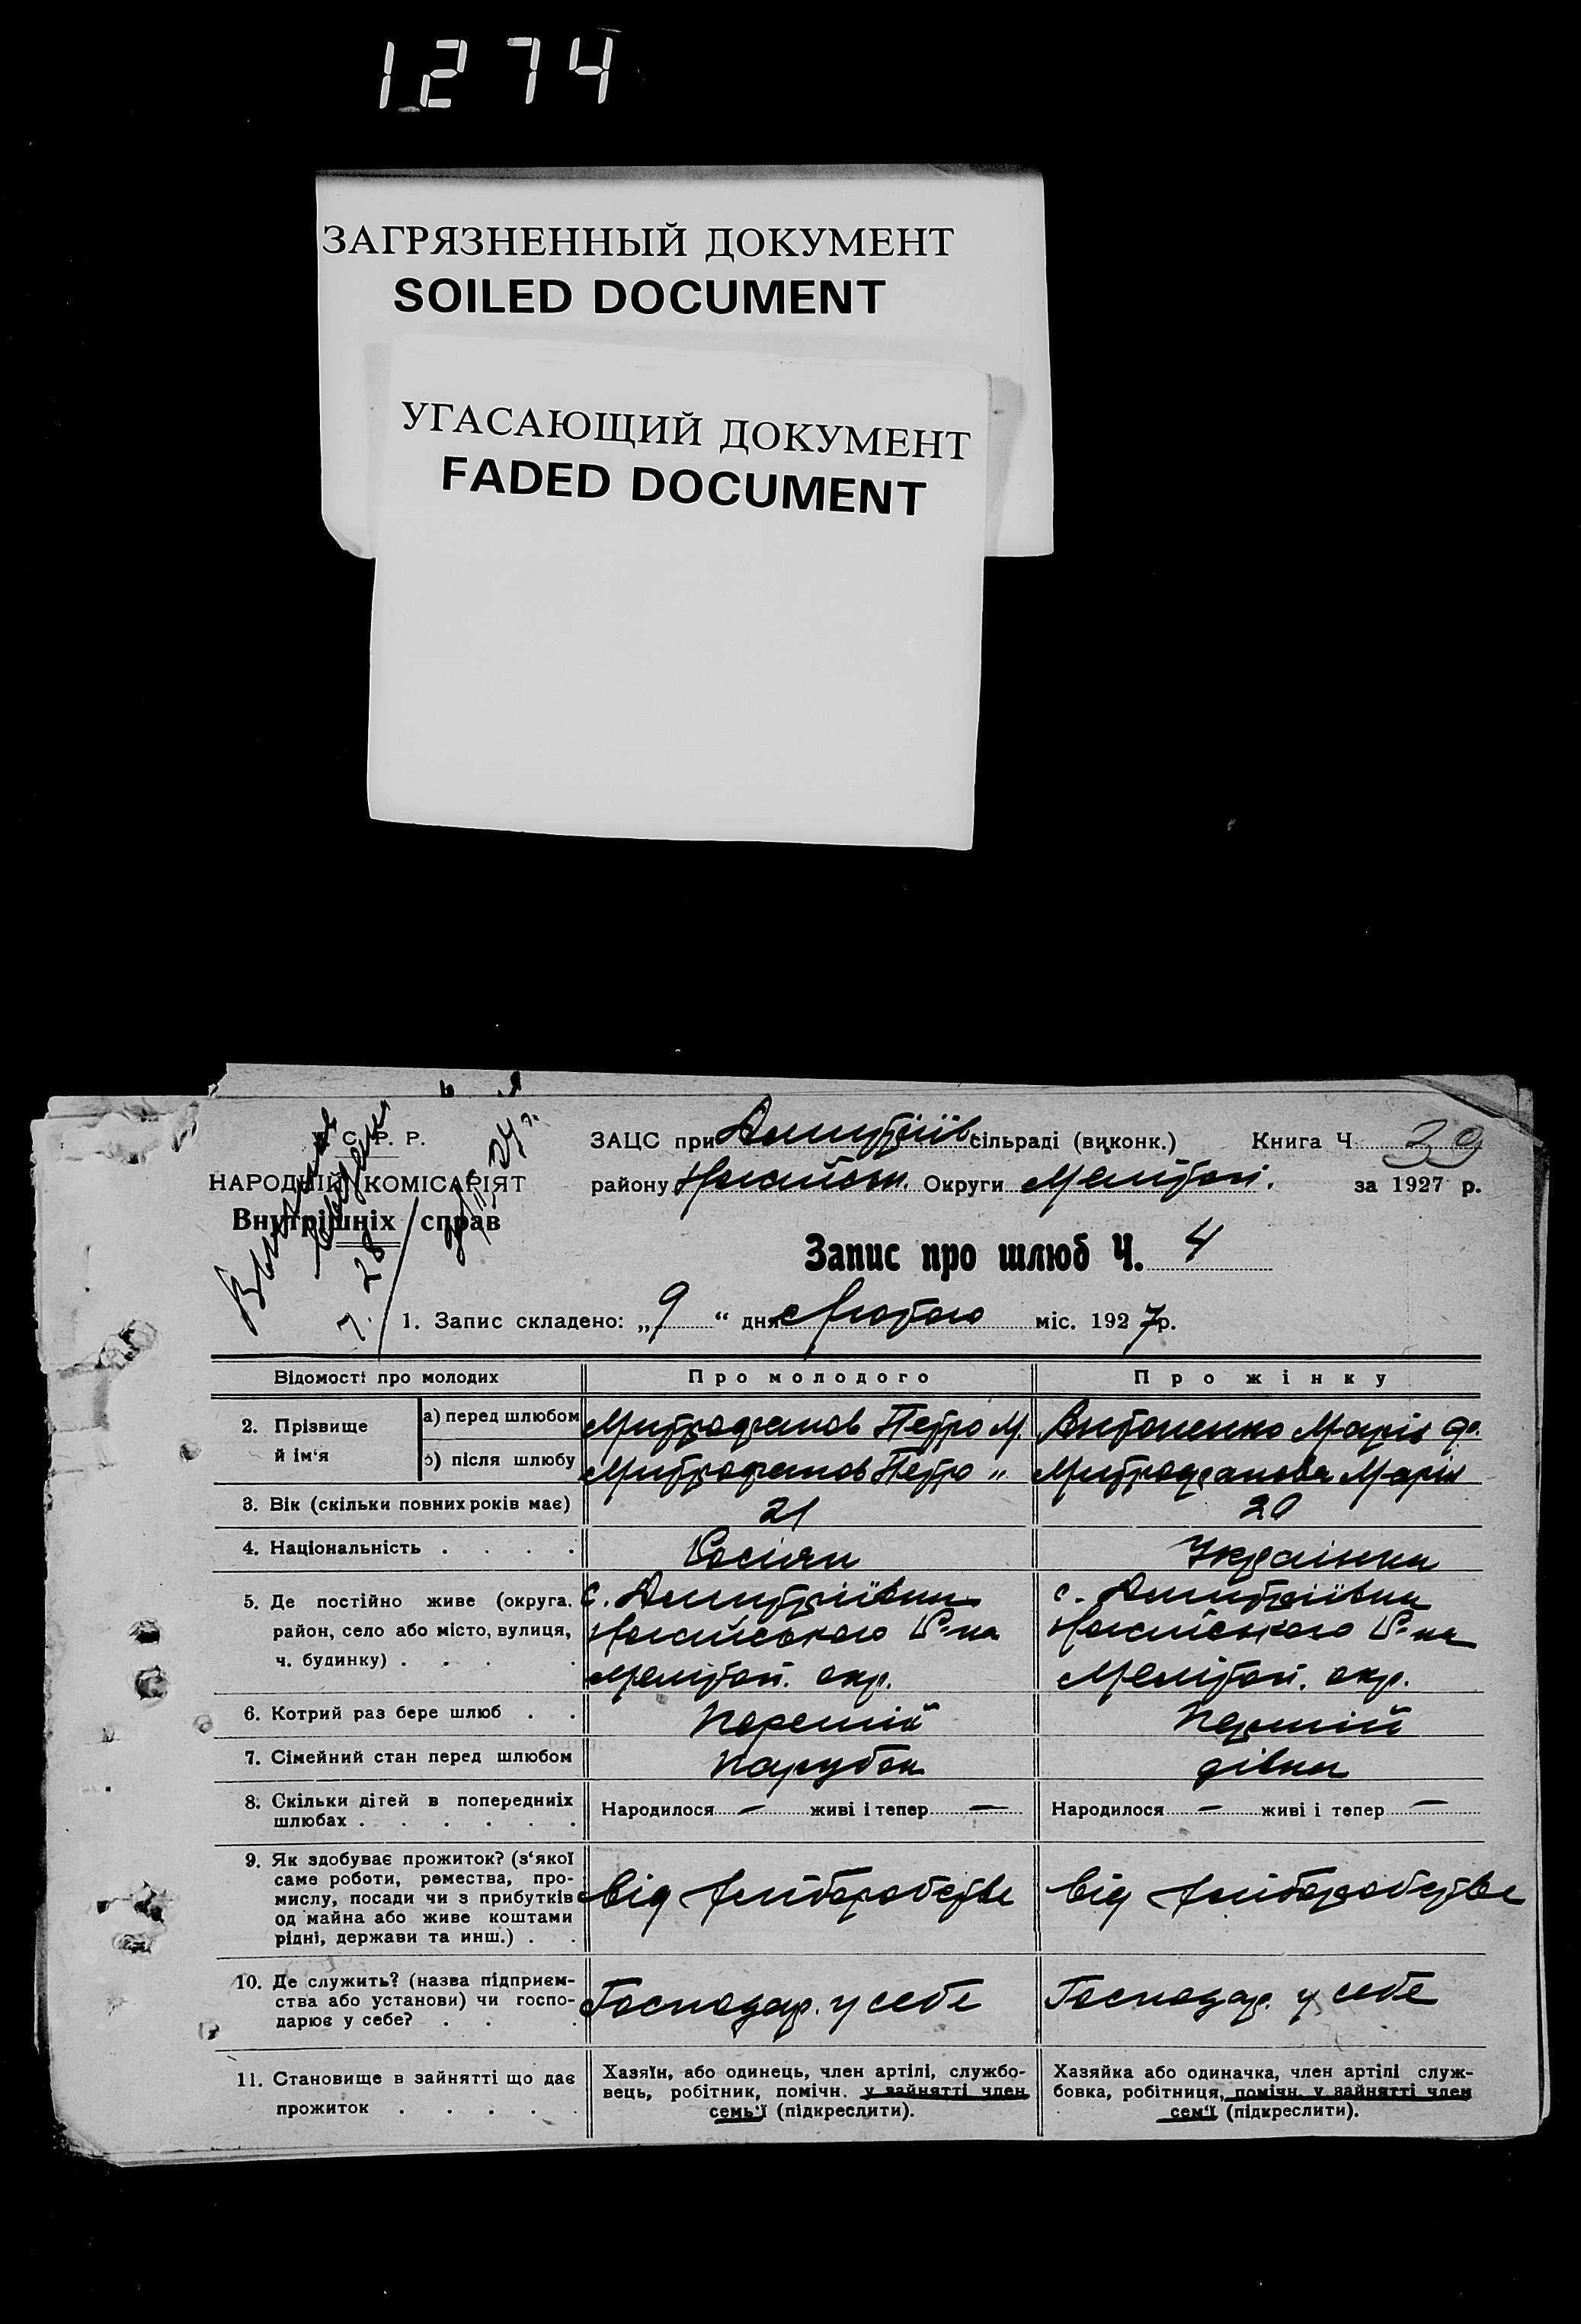 1274
ЗАГРЯЗНЕННЫЙ ДОКУМЕНТ
SOILED DOCUMENT
УГАСАЮЩИЙ ДОКУМЕНТ
FADED DOCUMENT
С. Р. Р.
НАРОДНІЙ КОМІСАРІЯТ
Внутрішніх справ
ЗАЦС при Дмитріїв сільраді (виконк.) Книга Ч. 39
району Округи Мелітоп. за 1927 р.
Запис про шлюб Ч. 4
1. Запис складено: „9“ дня Лютого міс. 1927 р.
Відомості про молодих Про молодого Про жінку
2. Прізвище й ім'я
а) перед шлюбом Митрофанов Петро М. Антоненко Марія
б) після шлюбу Митрофанов Петро " Митрофанова Марія
3. Вік (скільки повних років має) 21 20
4. Національність . . . . Росіян Українка
5. Де постійно живе (округа, район, село або місто, вулиця, ч. будинку) . . . .
с. Дмитріївка
Р-на
Мелітоп. окр.
с. Дмитріївка
Р-на
Мелітоп. окр.
6. Котрий раз бере шлюб . . Перший Перший
7. Сімейний стан перед шлюбом Парубок дівка
8. Скільки дітей в попередніх шлюбах . . . . . .
Народилося — живі і тепер —
Народилося — живі і тепер —
9. Як здобуває прожиток? (з'якої
саме роботи, ремества, про-
мислу, посади чи з прибутків
од майна або живе коштами
рідні, держави та инш.) . .
Від хліборобства
Від хліборобства
10. Де служить? (назва підприєм-
ства або установи) чи госпо-
дарює у себе? . . .
Господар. у себе
Господар. у себе
11. Становище в зайнятті що дає
прожиток . . . . .
Хазяїн, або одинець, член артілі, службо-
вець, робітник, помічн. у зайнятті член
семь'ї (підкреслити).
Хазяйка або одиначка, член артілі служ-
бовка, робітниця, помічн. у зайнятті член
сем'ї (підкреслити).